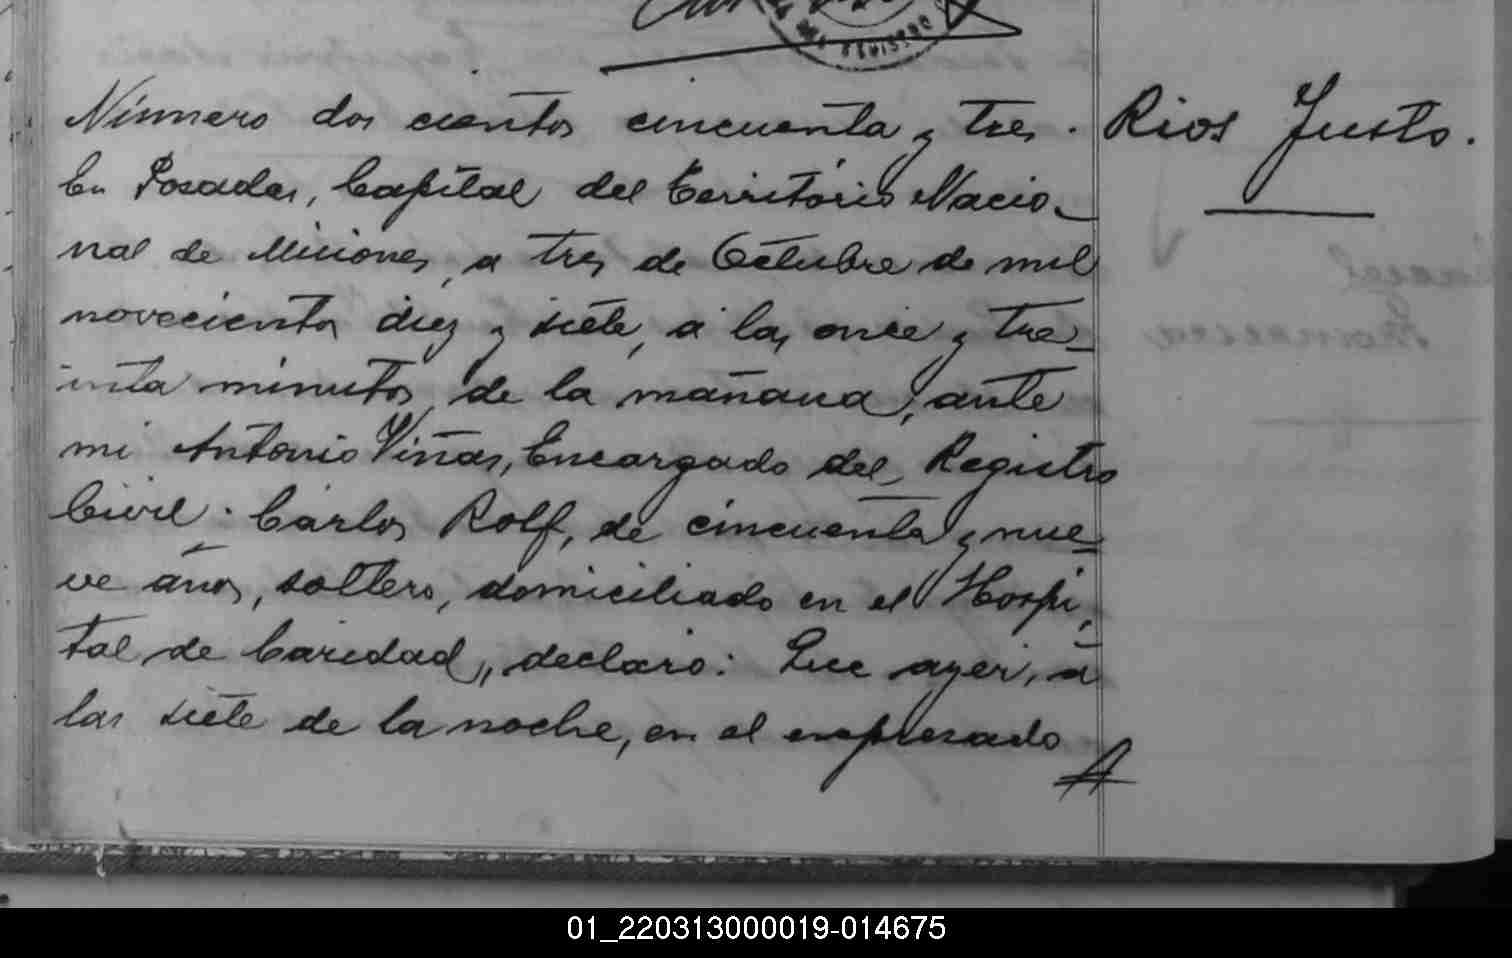 Número dos cientos cincuenta y tres.
Rios Justo.
En Posadas, Capital del Territorio Nacio-
nal de Misiones, a tres de Octubre de mil
novecientos diez y siete, á las once y tre-
inta minutos de la mañana, ante
mi Antonio Viñas, Encargado del Registro
Civil. Carlos Rolf, de cincuenta y nue-
ve años, soltero, domiciliado en el Hospi-
tal de Caridad, declaró: Que ayer, á
las siete de la noche, en el expresado
01_220313000019-014675